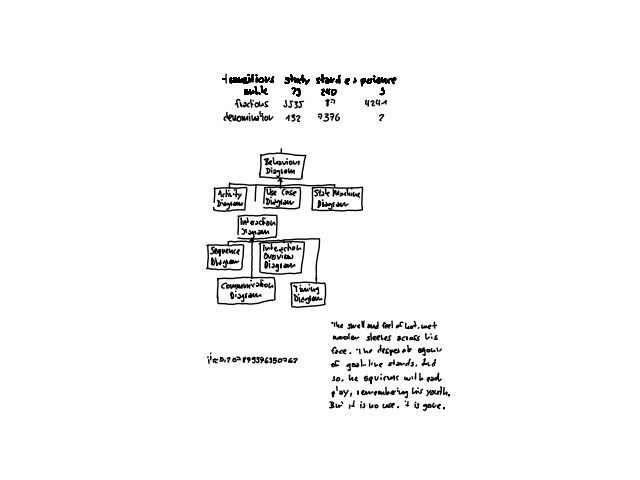 transitions study stand experience
noble 73 240 3
fractions 3535 87 4241
denomination 132 9376 ?
Behaviour
Diagram
Activity
Diagram
Use Case
Diagram
State Machine
Diagram
Interaction
Diagram
Sequence
Diagram
Interaction
Overview
Diagram
Communication
Diagram
Timing
Diagram
The smell and feel of hot, wet
woolen sleeves across his
face. The desperate agony
of goat-like stands. And
so, he squirms with
play, remembering his youth.
But it is no use. it is gone.